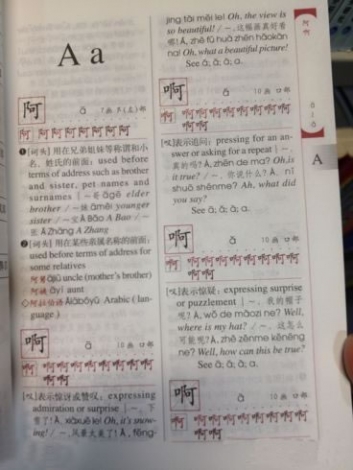 A a
阿 ā 7画 阝(左)部
❶ [词头] 用在兄弟姐妹等称谓和小
名、姓氏的前面: used before
terms of address such as brother
and sister, pet names and
surnames | ~哥 āgē elder
brother / ~妹 āmèi younger
sister / ~宝 Ā Bǎo A Bao / ~
张 Ā Zhāng A Zhang
❷ [词头] 用在某些亲属名称的前面:
used before terms of address for
some relatives
阿舅 ājiù uncle (mother's brother)
阿姨 āyí aunt
◇阿拉伯语 Ālābóyǔ Arabic (lan-
guage)
啊 ā 10画 口部
[叹] 表示惊讶或赞叹: expressing
admiration or surprise | ~, 下
雪了! Ā, xiàxuě le! Oh, it's snow-
ing! / ~, 风景太美了! Ā, fēng-
jǐng tài měi le! Oh, the view is
so beautiful! / ~, 这幅画真好看
哪! Ā, zhè fú huà zhēn hǎokàn
na! Oh, what a beautiful picture!
See á; ǎ; à; a.
啊 á 10画 口部
[叹] 表示追问: pressing for an an-
swer or asking for a repeat | ~,
真的吗? Á, zhēn de ma? Oh, is
it true? / ~, 你说什么? Á, nǐ
shuō shénme? Ah, what did
you say?
See ā; ǎ; à; a.
啊 ǎ 10画 口部
[叹] 表示惊疑: expressing surprise
or puzzlement | ~, 我的帽子
呢? Ǎ, wǒ de màozi ne? Well,
where is my hat? / ~, 这怎么
可能呢? Ǎ, zhè zěnme kěnéng
ne? Well, how can this be true?
See ā; á; à; a.
啊 à 10画 口部
阿
啊
A